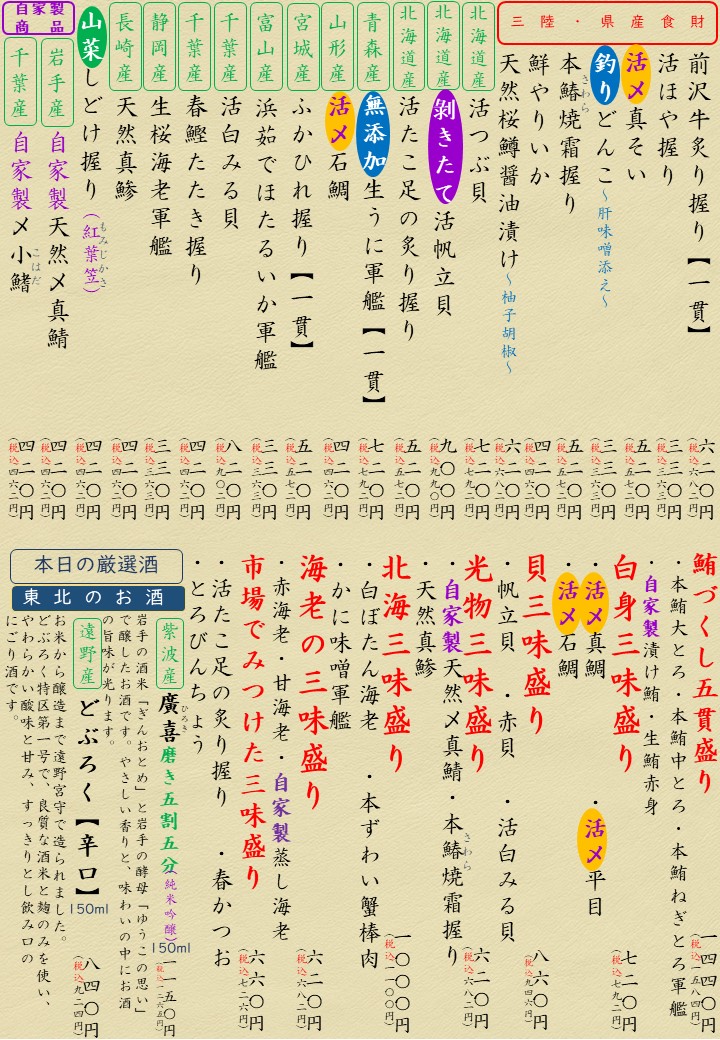 三陸・県産食財
前沢牛炙り握り【一貫】
六二〇円
(税込六八二円)
活ほや握り
三三〇円
(税込三六三円)
活〆真そい
五二〇円
(税込五七二円)
釣りどんこ～肝味噌添え～
三三〇円
(税込三六三円)
本鰆焼霜握り
さわら
五二〇円
(税込五七二円)
鮮やりいか
四二〇円
(税込四六二円)
天然桜鱒醤油漬け～柚子胡椒～
六二〇円
(税込六八二円)
北海道産
活つぶ貝
七二〇円
(税込七九二円)
北海道産
剝きたて活帆立貝
九〇〇円
(税込九九〇円)
北海道産
活たこ足の炙り握り
五二〇円
(税込五七二円)
青森産
無添加生うに軍艦【一貫】
七二〇円
(税込七九二円)
山形産
活〆石鯛
四二〇円
(税込四六二円)
宮城産
ふかひれ握り【一貫】
五二〇円
(税込五七二円)
富山産
浜茹でほたるいか軍艦
三三〇円
(税込三六三円)
千葉産
活白みる貝
八二〇円
(税込九〇二円)
千葉産
春鰹たたき握り
四二〇円
(税込四六二円)
静岡産
生桜海老軍艦
三三〇円
(税込三六三円)
長崎産
天然真鯵
四二〇円
(税込四六二円)
山菜しどけ握り(紅葉笠)
もみじかさ
四二〇円
(税込四六二円)
自家製
商品
岩手産
自家製天然〆真鯖
四二〇円
(税込四六二円)
千葉産
自家製〆小鰭
こはだ
四二〇円
(税込四六二円)
鮪づくし五貫盛り
一四四〇円
(税込一五八四円)
・本鮪大とろ・本鮪中とろ・本鮪ねぎとろ軍艦
・自家製漬け鮪・生鮪赤身
白身三味盛り
七二〇円
(税込七九二円)
・活〆真鯛・活〆平目
・活〆石鯛
貝三味盛り
八六〇円
(税込九四六円)
・帆立貝・赤貝・活白みる貝
光物三味盛り
六二〇円
(税込六八二円)
・自家製天然〆真鯖・本鰆焼霜握り
さわら
・天然真鯵
北海三味盛り
一〇〇〇円
(税込一一〇〇円)
・白ぼたん海老・本ずわい蟹棒肉
・かに味噌軍艦
海老の三味盛り
六二〇円
(税込六八二円)
・赤海老・甘海老・自家製蒸し海老
市場でみつけた三味盛り
六六〇円
(税込七二六円)
・活たこ足の炙り握り・春かつお
・とろびんちょう
本日の厳選酒
東北のお酒
紫波産
廣喜磨き五割五分(純米吟醸)
ひろき
150ml
一一五〇円
(税込一二六五円)
岩手の酒米「ぎんおとめ」と岩手の酵母「ゆうこの思い」
で醸したお酒です。やさしい香りと、味わいの中にお酒
の旨味が光ります。
遠野産
どぶろく【辛口】
150ml
八四〇円
(税込九二四円)
お米から醸造まで遠野宮守で造られました。
どぶろく特区第一号で、良質な酒米と麹のみを使い、
やわらかい酸味と甘み、すっきりとし飲み口の
にごり酒です。